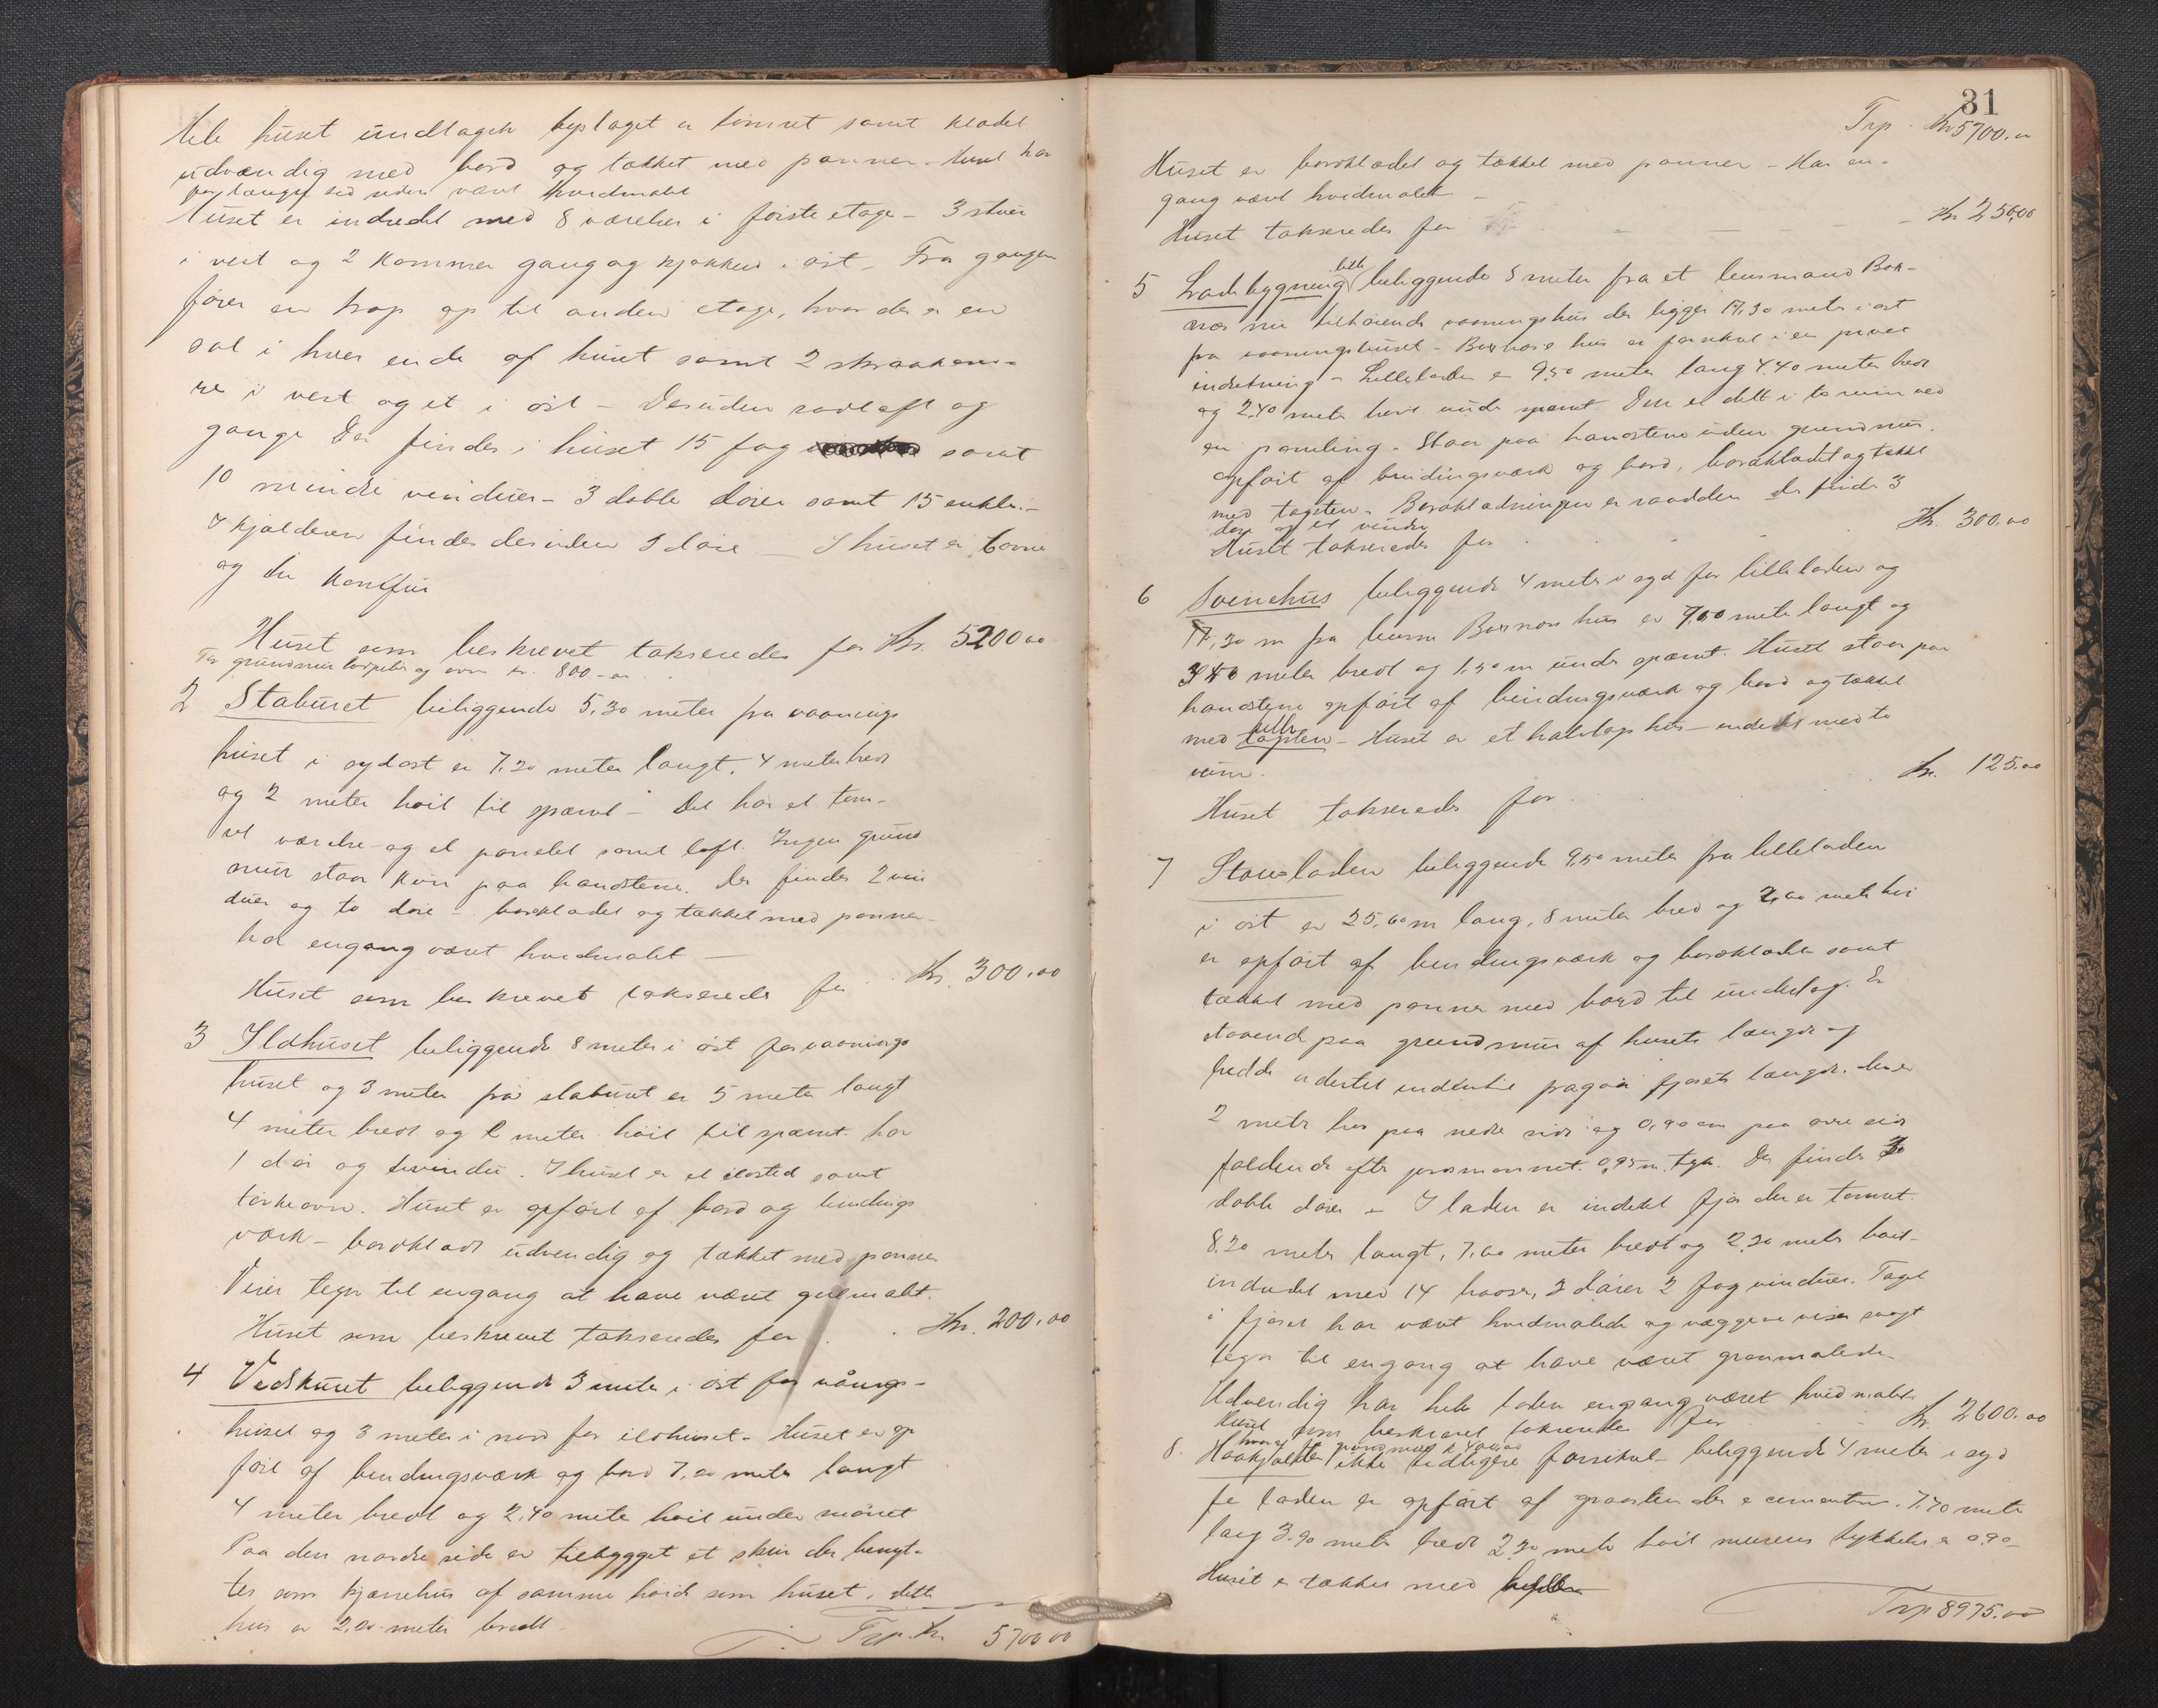 Hele huset undtagen byslaget er tømret samt klædt
udvændig med bord og tækket med panner. Huset har
for længer tid siden vært hvidmalet
Huset er indredet med 8 værelser i første etage - 3 stuer
i vest og 2 kammer gang og kjøkken i øst - Fra gangen
fører en trap op til anden etage, hvor der er en
sal i hver ende af huset samt 2 skraakam-
re i vest og et i øst - Desuden svalloft og
gange Der findes i huset 15 fag samt
10 mindre vinduer - 3 doble dører samt 15 enkle. -
I kjælderen findes desuden 1 døre - I huset er 6 ovne
og en komfur
Huset som beskrevet takseredes for Kr. 5200.00
For grundmur og ovn kr. 800-oo
2 Staburet beliggende 5,30 meter fra vaanings
huset i sydøst er 7,20 meter langt, 4 meter bredt
og 2 meter høit til spænd - Det har et tøm-
ret værelse og et panelet samt loft. Ingen grund
mur staar kun paa handstene. Der findes 2 vin
duer og to døre - bordklædet og tækket med panner -
har engang været hvidmalet -
Huset som beskrevet takseredes for Kr. 300.00
3 Ildhuset beliggende 8 meter i øst for vaanings
huset og 3 meter fra staburet er 5 meter langt
4 meter bredt og 2 meter høit til spænd. har
1 dør og 1 vindu. I huset er et ildsted samt
tørkeovn. Huset er opført af bord og bindings
værk - bordklædt udvendig og tækket med panner
Viser tegn til engang at have været gulmalt.
Huset som beskrevet takseredes for Kr. 200.00
4 Vedskuret beliggende 3 meter i øst for vånings-
huset og 3 meter i nord for ildhuset - Huset er op
ført af bindingsværk og bord 7,20 meter langt
4 meter bredt og 2,40 meter høit under mønet
Paa den nordre side er tilbygget et skur der beny-
tes som kjærrehus af samme høide som huset, dette
hus er 2,20 meter bredt.
Trp. Kr. 5700.00
31
Trp. Kr 5700.00
Huset er bordklædet og tækket med panner - Har en-
gang vært hvidmalet -
Huset takseredes for Kr 250.00
5 Ladebygning lille beliggende 8 meter fra et lensmand Box-
næs nu tilhørende vaaningshus der ligger 17,30 meter i øst
fra vaaningshuset - Boxnæs hus er forsikret i en privat
indretning - Lilleladen er 9,50 meter lang 4.40 meter bred
og 2.40 meter høi under spænd. Den er delt i to rum ved
en paneling. Staar paa handstene uden grundmur.
opført af bindingsværk og bord, bordklædet og tækket
med tagsten. Bordklædningen er raadden Der findes 3
døre og et vindu
Huset takseredes for Kr. 300.00
6 Svinehus beliggende 4 meter i syd for lilleladen og
17,30 m fra lensm Boxnæs hus er 9.00 meter langt og
3.40 meter bredt og 1,50 m under spænd. Huset staar paa
handstene opført af bindingsværk og bord og tækket
med heller tagsten - Huset er et halvtags hus - inddelt med to
rum.
Huset takseredes for Kr. 125.00
7 Storeladen beliggende 9,50 meter fra lilleladen
i øst er 25,60 m lang, 8 meter bred og 2,60 meter høi
er opført af bindingsværk og bordklædt samt
tækket med panner med bord til underlag. Er
staaende paa grundmur af husets længde og
bredde undertil fjøsets længde, den er
2 meter høi paa nedre side og 0,90 cm paa øvre side
faldende efter jordsmonnet. 0,95 m. tyk. Der findes 3
doble dører - I laden er indelet fjøs der er tømret.
8.20 meter langt, 7,00 meter bredt og 2.20 meter høit -
indredet med 14 baaser, 3 dører 2 fag vinduer. Taget
i fjøset har vært hvidmalede og væggene viser svagt
tegn til engang at have været grønmalede.
Udvendig har hele laden engang været hvidmalet.
Huset som beskrevet takseredes for Kr. 2600.00
hvoraf grundmur kr 400.00
8. Haakjælder ikke tidligere forsikret - beliggende 4 meter i syd
for laden er opført af graasten der er cementeret. 7.70 meter
lang 3.90 meter bredt 2,20 meter høit murens tykkelse er 0.90 -
Huset er tækket med heller
Trp 8975.00